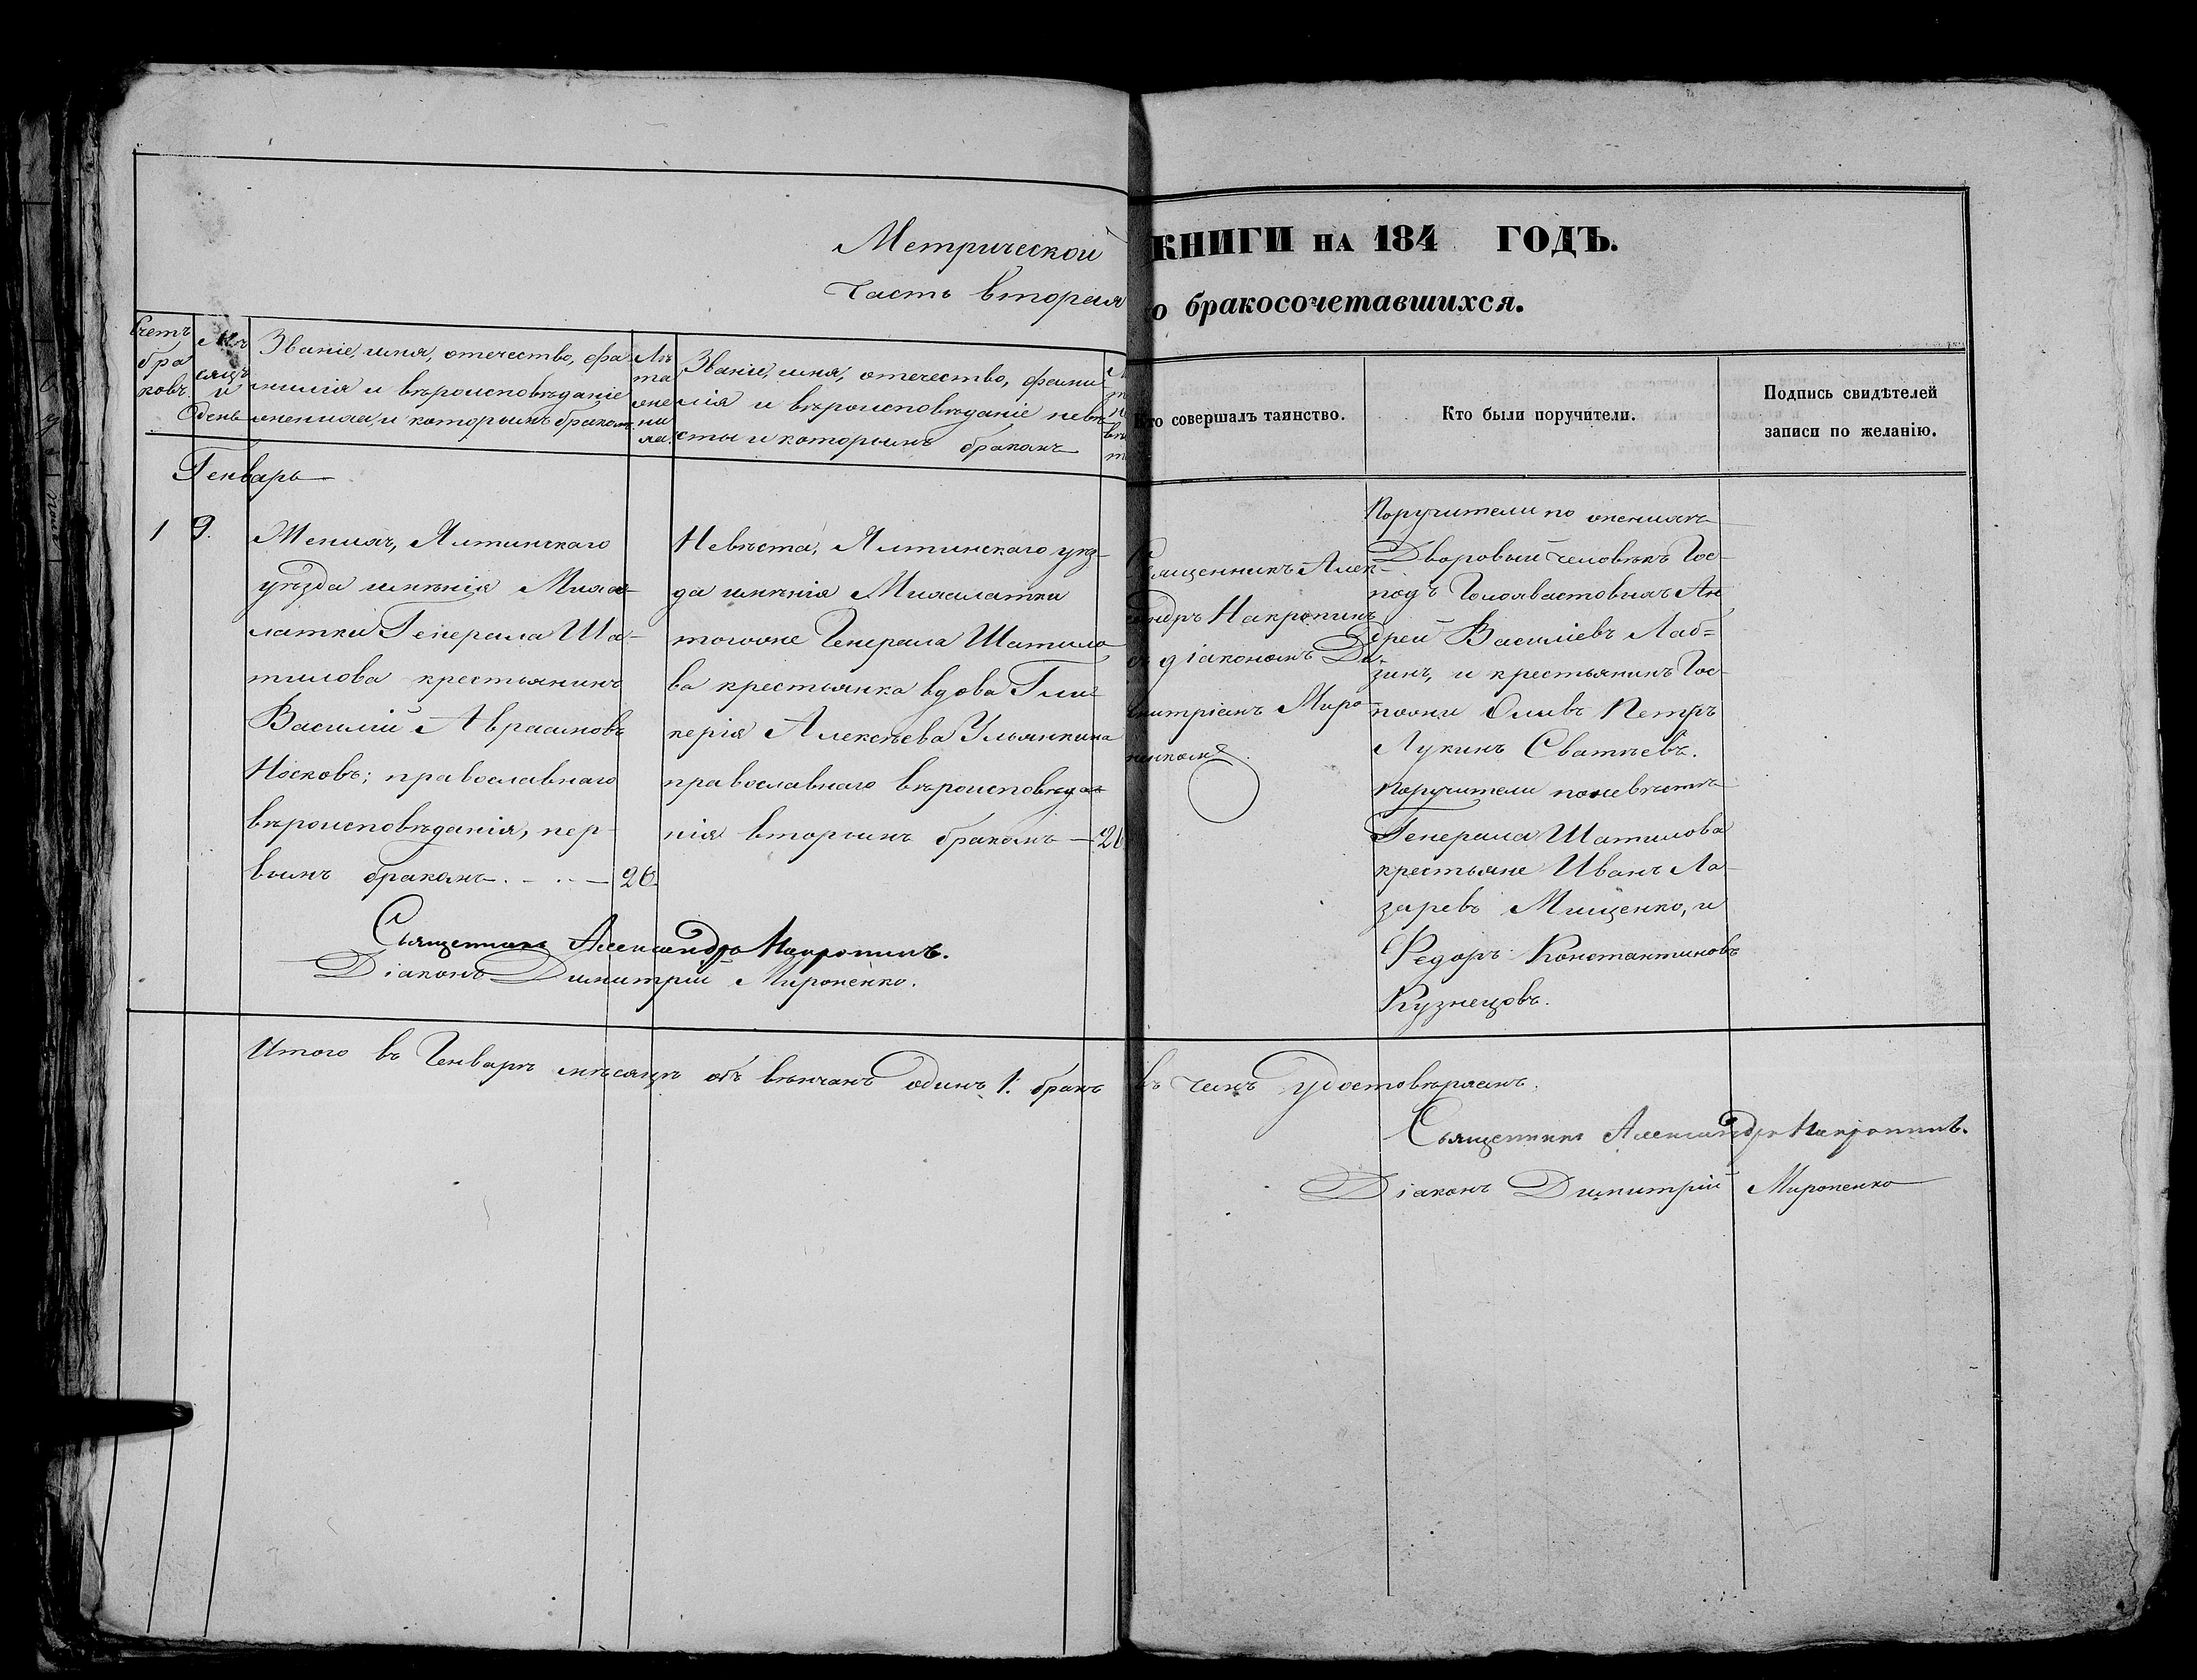 Метрической
часть вторая
КНИГИ НА 184 ГОДЪ.
о бракосочетавшихся.
Счетъ
бра
ковъ.
Мѣ
сяцъ
и
день
Званіе, имя, отечество, фа
милія и вѣроисповѣданіе
жениха, и которымъ бракомъ
Лѣ
та
же
ни
ха.
Званіе, имя, отечество, фами
лія и вѣроисповѣданіе невѣ
сты и которымъ бракомъ
Кто совершалъ таинство.
Кто были поручители.
Подпись свидѣтелей
записи по желанію.
Генварь
1 9.
Женихъ, Ялтинскаго
уѣзда имѣнія Мшас-
латки Генерала Ша-
тилова крестьянинъ
Василій Аврамовъ
Носковъ; православнаго
вѣроисповѣданія, пер-
вымъ бракомъ. - . . — 26.
Невѣста, Ялтинскаго уѣз-
да имѣнія Мшаслатки
тогоже Генерала Шатило
ва крестьянка вдова Гли-
керія Алексѣева Ульянкина
православнаго вѣроисповѣда-
нія вторымъ бракомъ — 26
Священникъ Алек-
сандръ Накропинъ
съ діакономъ Ди-
митріемъ Миро-
ненкомъ.
Поручители по женихѣ
Дворовый человѣкъ Гос-
подъ Ан
дрей Василіевъ Лаб=
зинъ, и крестьянинъ Гос-
пожи Оливъ Петръ
Лукинъ Сватѣевъ.
Поручители по невѣстѣ
Генерала Шатилова
крестьяне Иванъ Ла-
заревъ Мищенко, и
Федоръ Константиновъ
Кузнецовъ.
Священникъ Александръ Накропинъ.
Діаконъ Димитрій Мироненко.
Итого въ Генварѣ мѣсяцѣ объ вѣнчанъ одинъ 1. бракъ въ чемъ удостовѣряемъ.
Священникъ Александръ Накропинъ.
Діаконъ Димитрій Мироненко